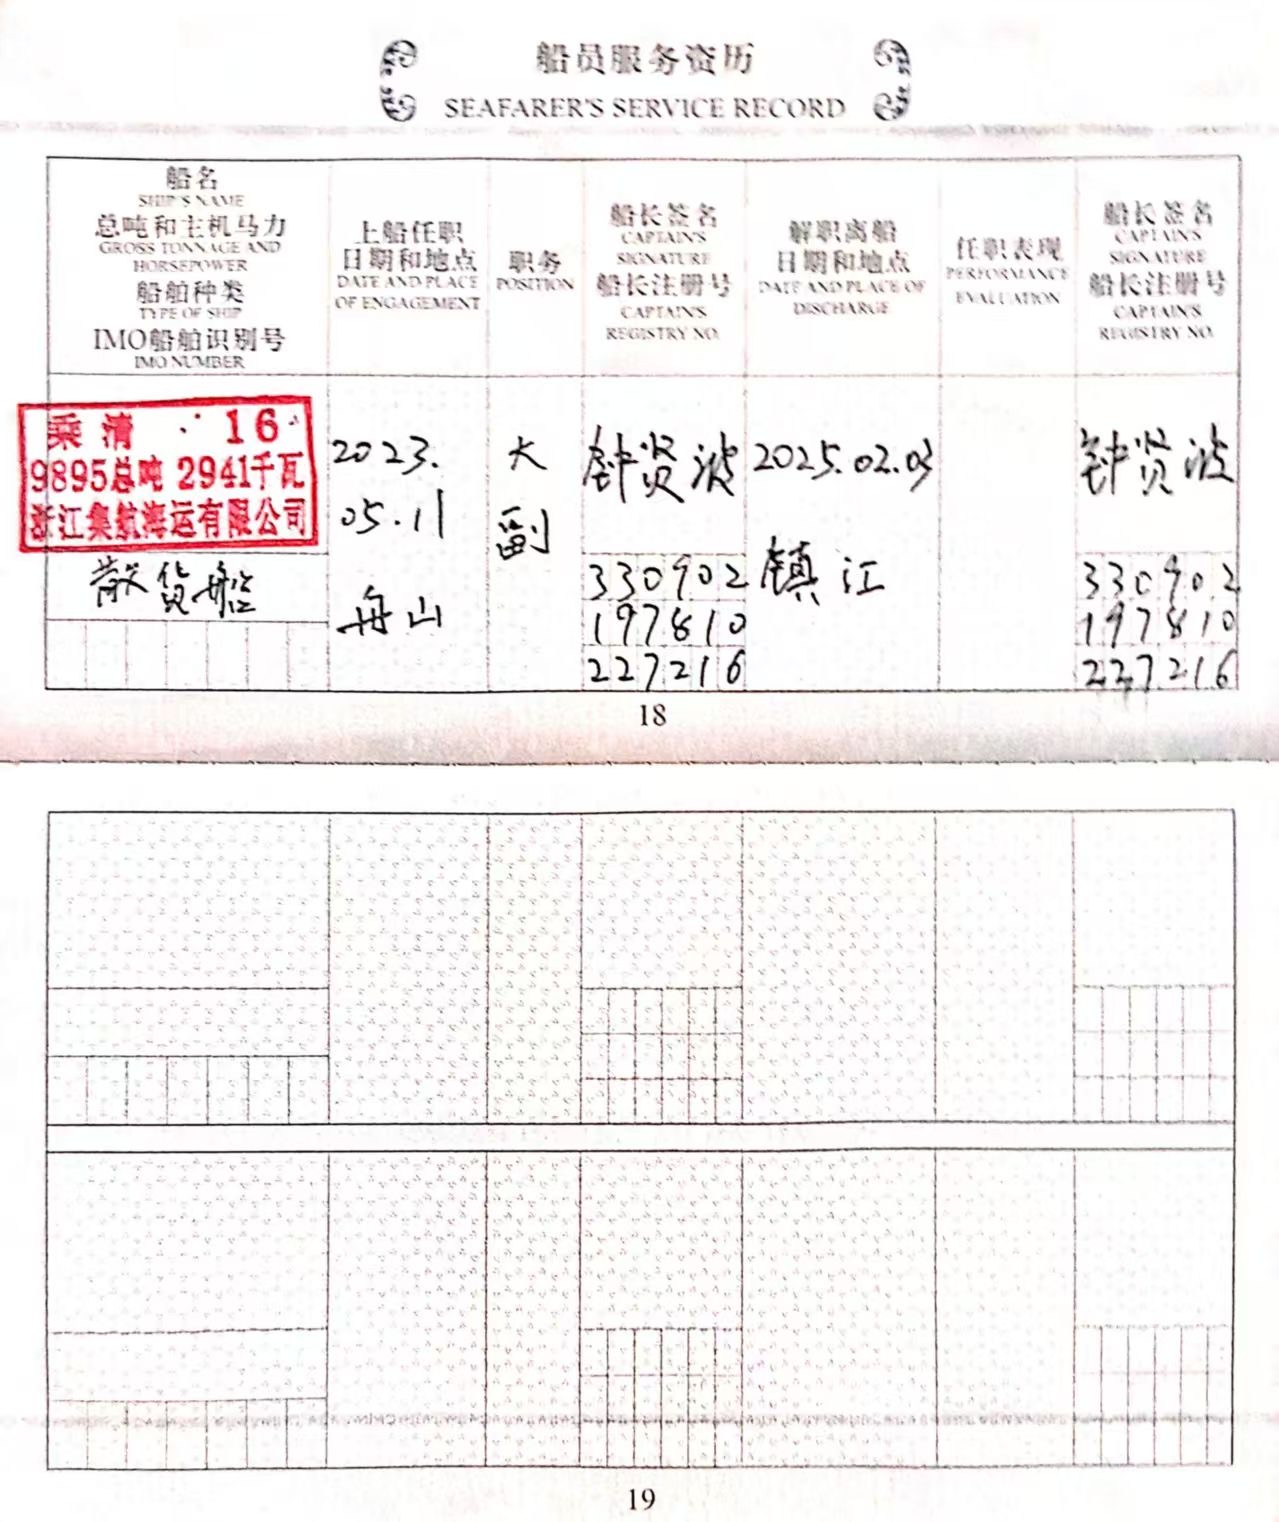 船员服务资历
SEAFARER'S SERVICE RECORD
船名
SHIP'S NAME
总吨和主机马力
GROSS TONNAGE AND
HORSEPOWER
船舶种类
TYPE OF SHIP
IMO船舶识别号
IMO NUMBER
上船任职
日期和地点
DATE AND PLACE
OF ENGAGEMENT
职务
POSITION
船长签名
CAPTAIN'S
SIGNATURE
船长注册号
CAPTAIN'S
REGISTRY NO.
解职离船
日期和地点
DATE AND PLACE OF
DISCHARGE
任职表现
PERFORMANCE
EVALUATION
船长签名
CAPTAIN'S
SIGNATURE
船长注册号
CAPTAIN'S
REGISTRY NO.
乘清 16
9895总吨 2941千瓦
浙江集航海运有限公司
散货船
2023.
05.11
舟山
大
副
钟贤波
330902
197810
227216
2025.02.03
镇江
钟贤波
330902
197810
227216
18
19